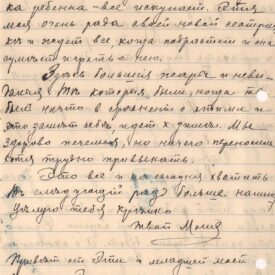 ка ребенка - все искупает. Этя
моя очень рада своей новой сестрич
ки и ждет все когда подрастет и она
сумеет играть с нею.
Здесь большие жары и неви-
которыя были, когда ты
был ничто в сравнении с этими и
это дает себя идет к зиме. Мы
здорово печемся, но ничего переносим
хотя трудно привыкать.
Это все и на сегодня хватит
В следующий раз больше напишу
Целую тебя крепко
Твоя Моня
Привет от Эти и младшей моей